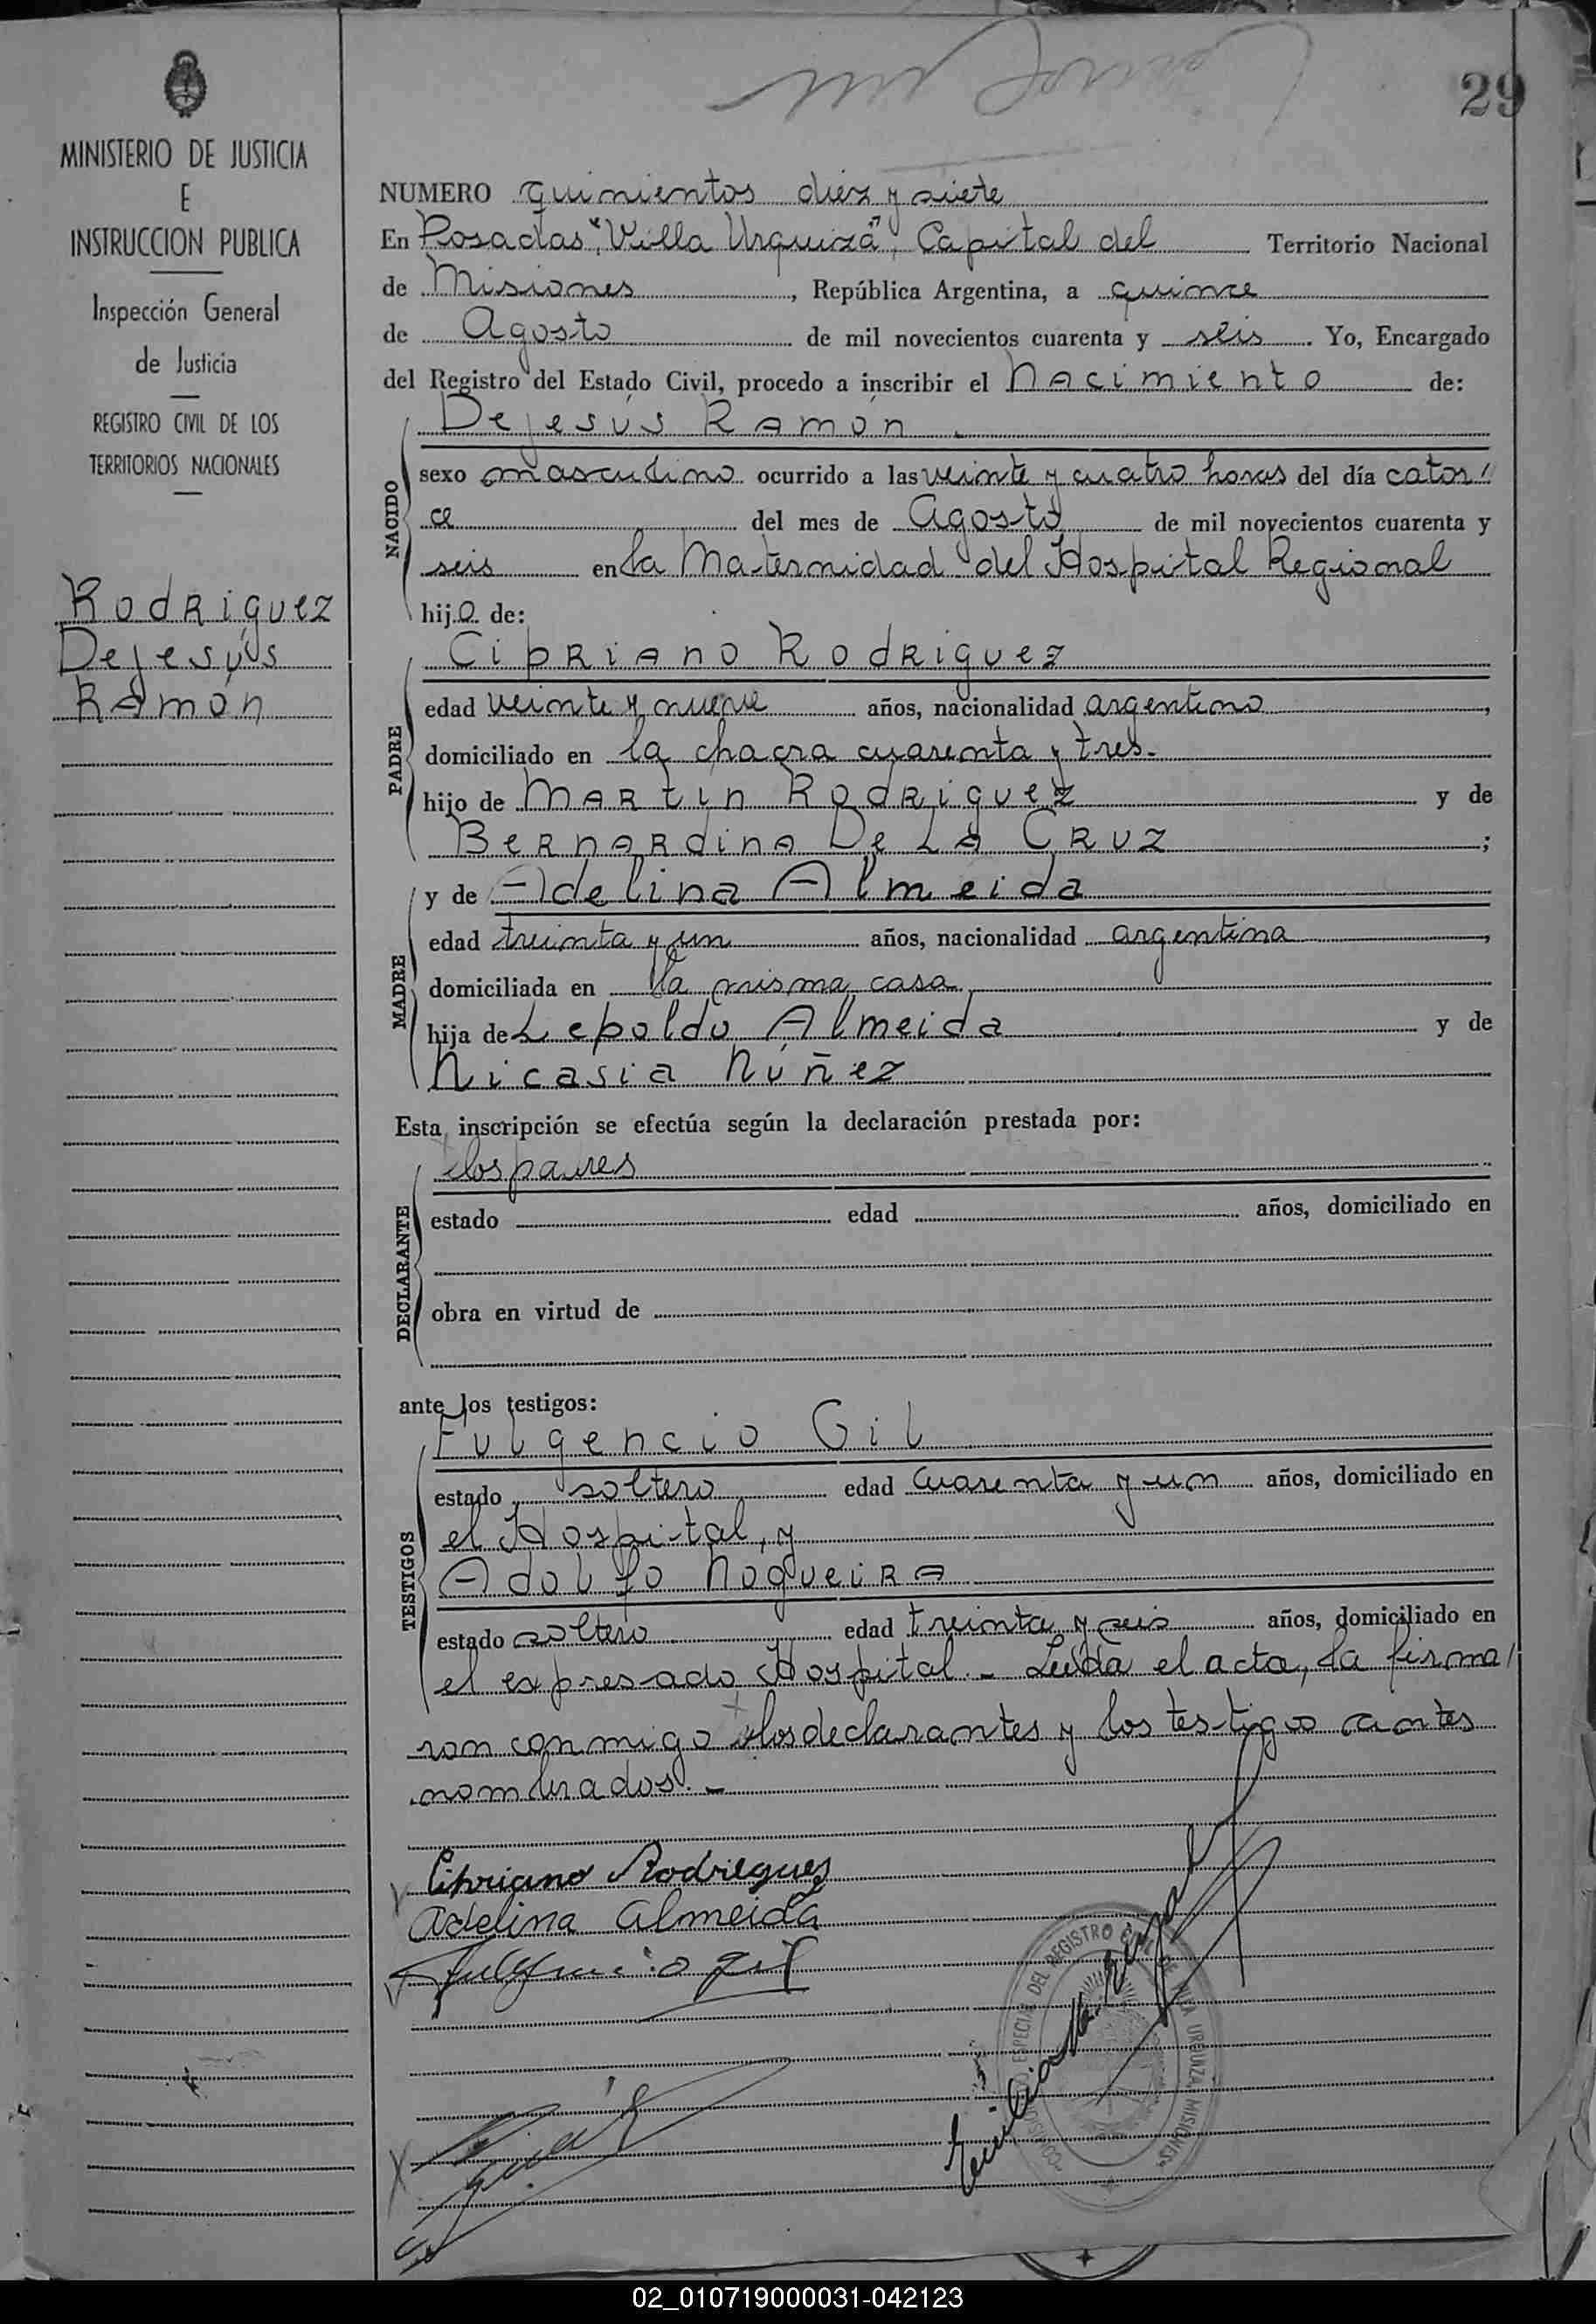 29
MINISTERIO DE JUSTICIA
E
INSTRUCCION PUBLICA
Inspección General
de Justicia
REGISTRO CIVIL DE LOS
TERRITORIOS NACIONALES
Rodriguez
Dejesús
Ramón
NUMERO quinientos diez y siete
En Posadas "Villa Urquiza", Capital del Territorio Nacional
de Misiones, República Argentina, a quince
de Agosto de mil novecientos cuarenta y seis. Yo, Encargado
del Registro del Estado Civil, procedo a inscribir el Nacimiento de:
NACIDO
Dejesús Ramón
sexo masculino ocurrido a las veinte y cuatro horas del día cator
ce del mes de Agosto de mil novecientos cuarenta y
seis en la Maternidad del Hospital Regional
hijo de:
PADRE
Cipriano Rodriguez
edad veinte y nueve años, nacionalidad argentino,
domiciliado en la chacra cuarenta y tres.
hijo de Martin Rodriguez y de
Bernardina De La Cruz;
MADRE
y de Adelina Almeida
edad treinta y un años, nacionalidad argentina,
domiciliada en la misma casa
hija de Lepoldo Almeida y de
Nicasia Núñez
Esta inscripción se efectúa según la declaración prestada por:
DECLARANTE
los
estado edad años, domiciliado en
obra en virtud de
ante los testigos:
TESTIGOS
Fulgencio Gil
estado soltero edad cuarenta y un años, domiciliado en
el Hospital, y
Adolfo Nogueira
estado soltero edad treinta y seis años, domiciliado en
el expresado Hospital. - Leída el acta, la firma
ron conmigo los declarantes y los testigos antes
nombrados. -
Cipriano Rodriegues
Adelina Almeida
Fulgencio Gil
DEL REGISTRO URQUIZA MISIONES
02_010719000031-042123